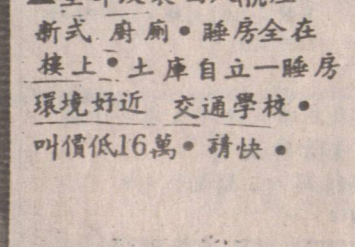 新式 廚廁•睡房全在
樓上•土庫自立一睡房
環境好近 交通學校•
叫價低16萬•請快•